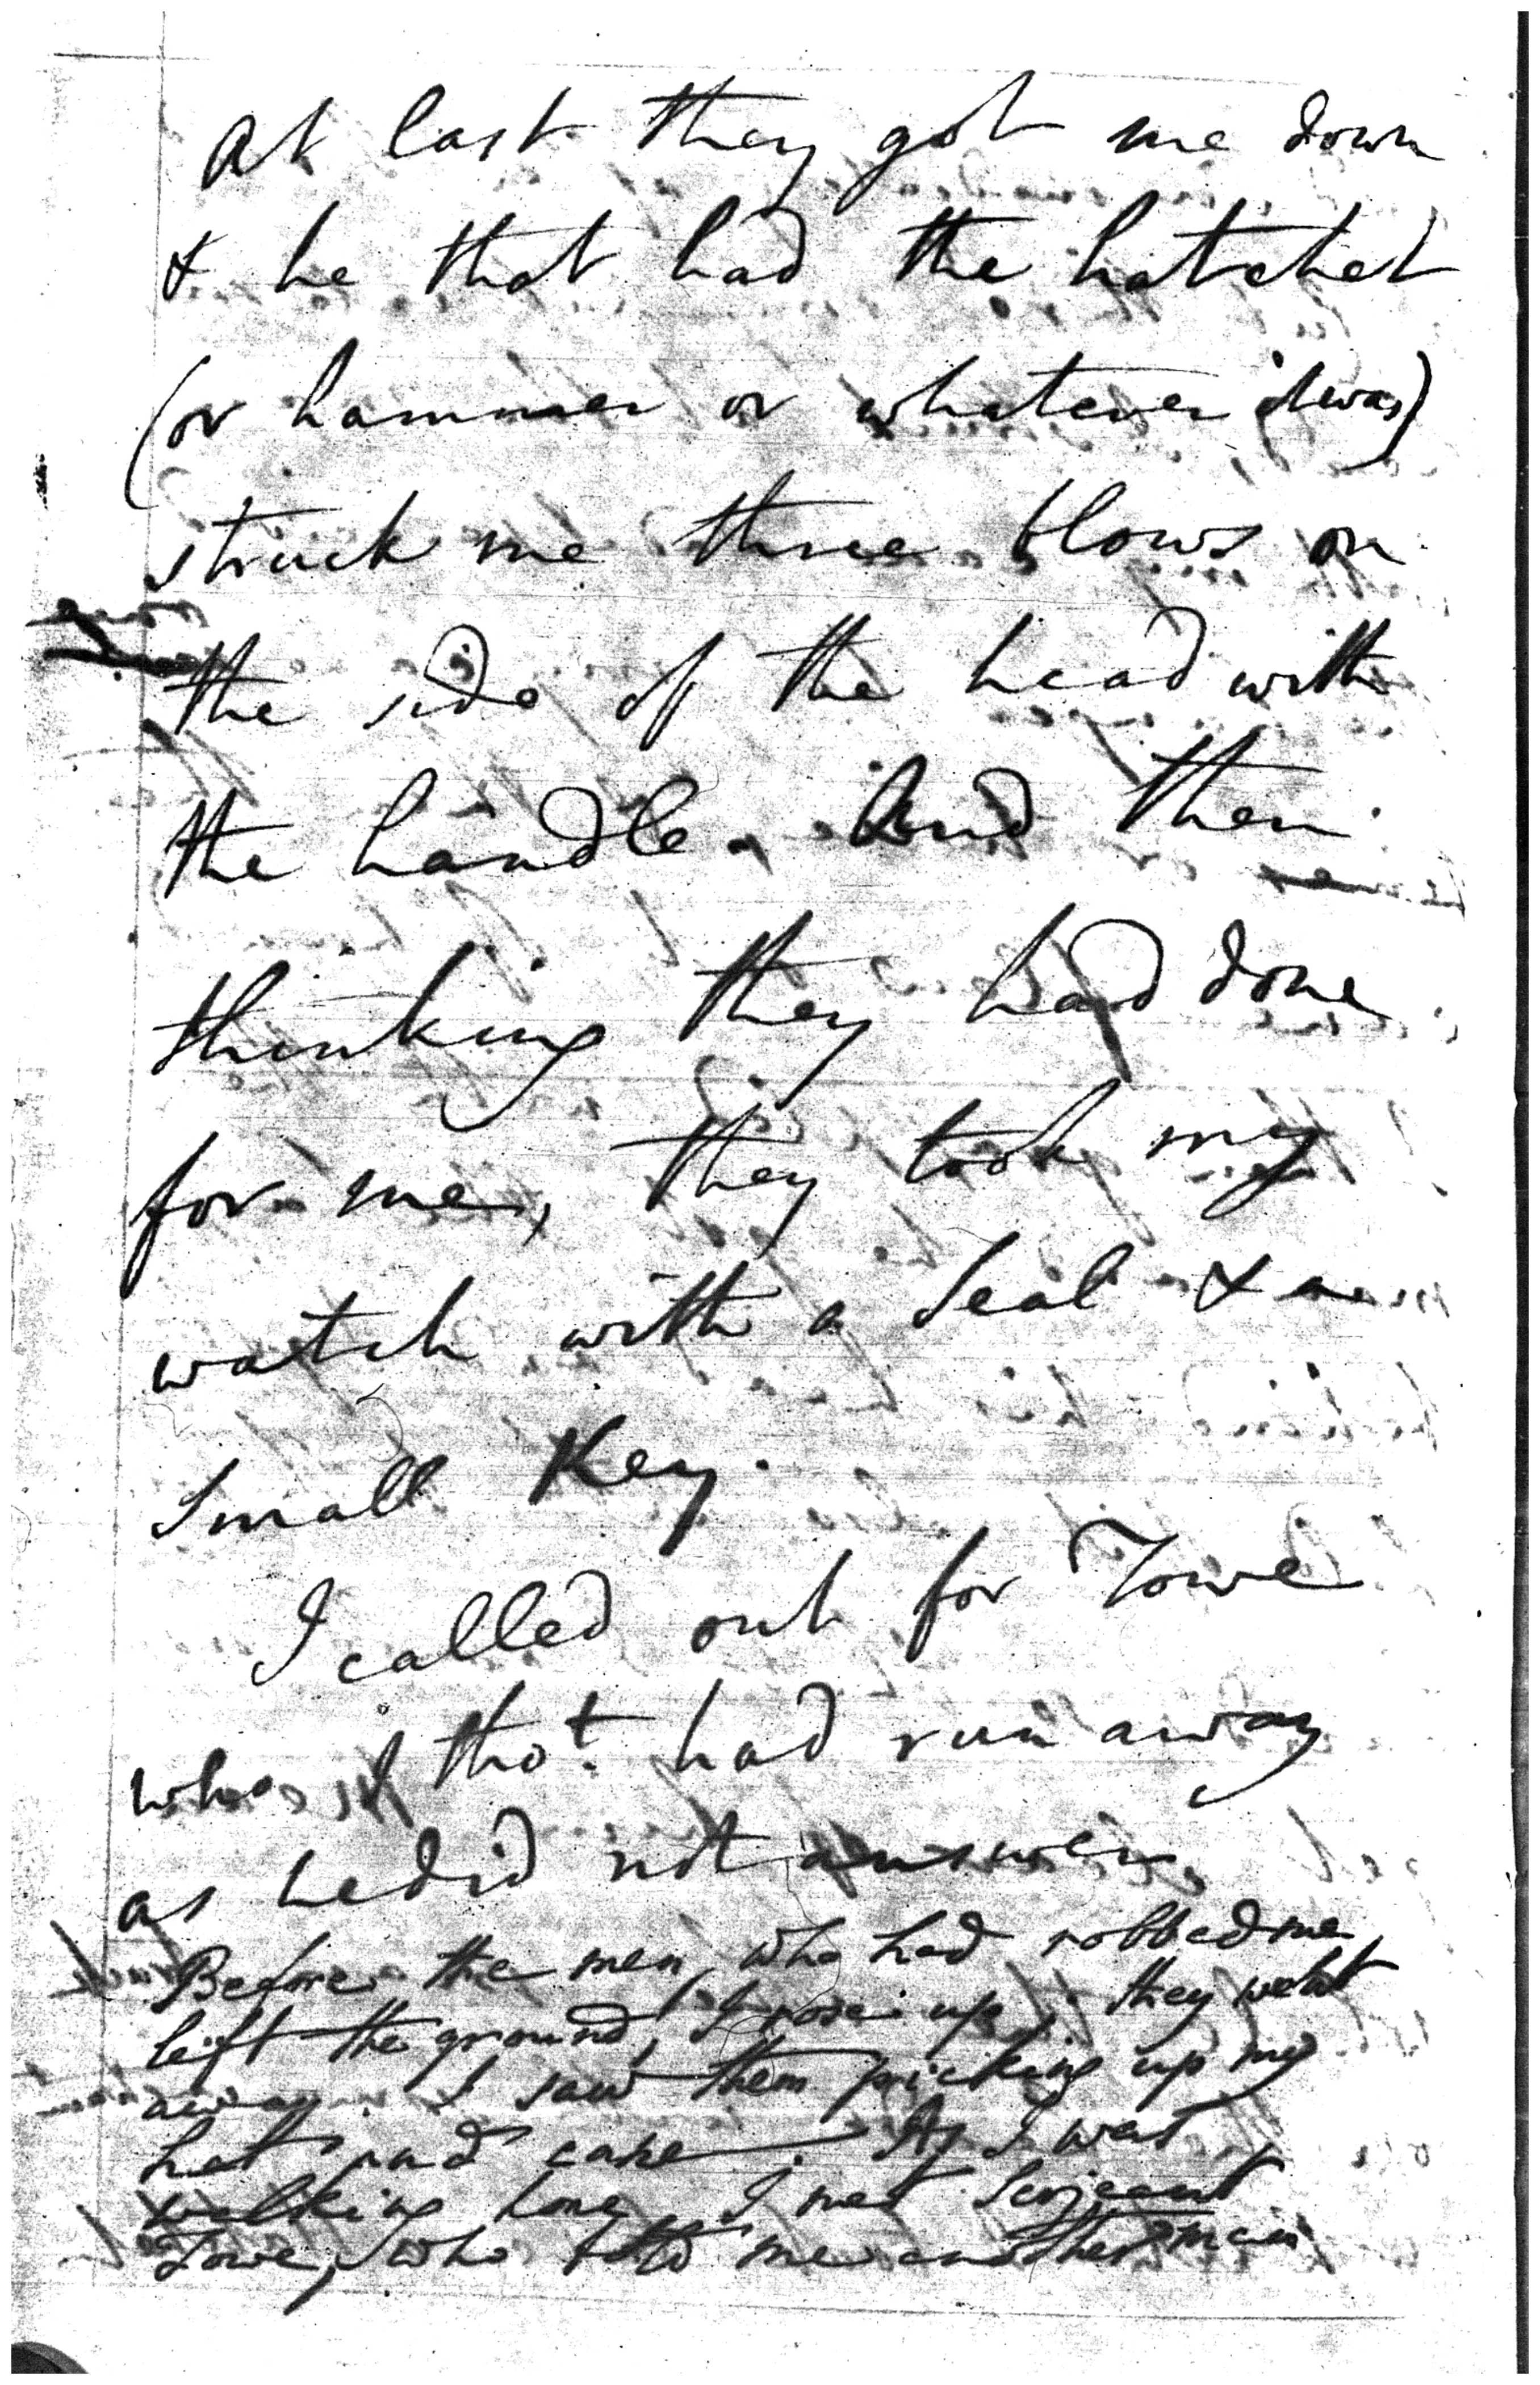 At last they got me down
& he that had the hatchet
(or hammer or whatever it was)
struck me three blows on
the side of the head with
the handle. And then
thinking they had done
for me, they took my
watch with a Seal & a
Small Key.
I called out for Towe
who I thot. had run away
as he did not answer.
Before the men, who had robbed me,
left the ground, I rose up. they went
away. I saw them picking up my
hat and cane. As I was
walking home I met Serjeant
Towe, who told me another man